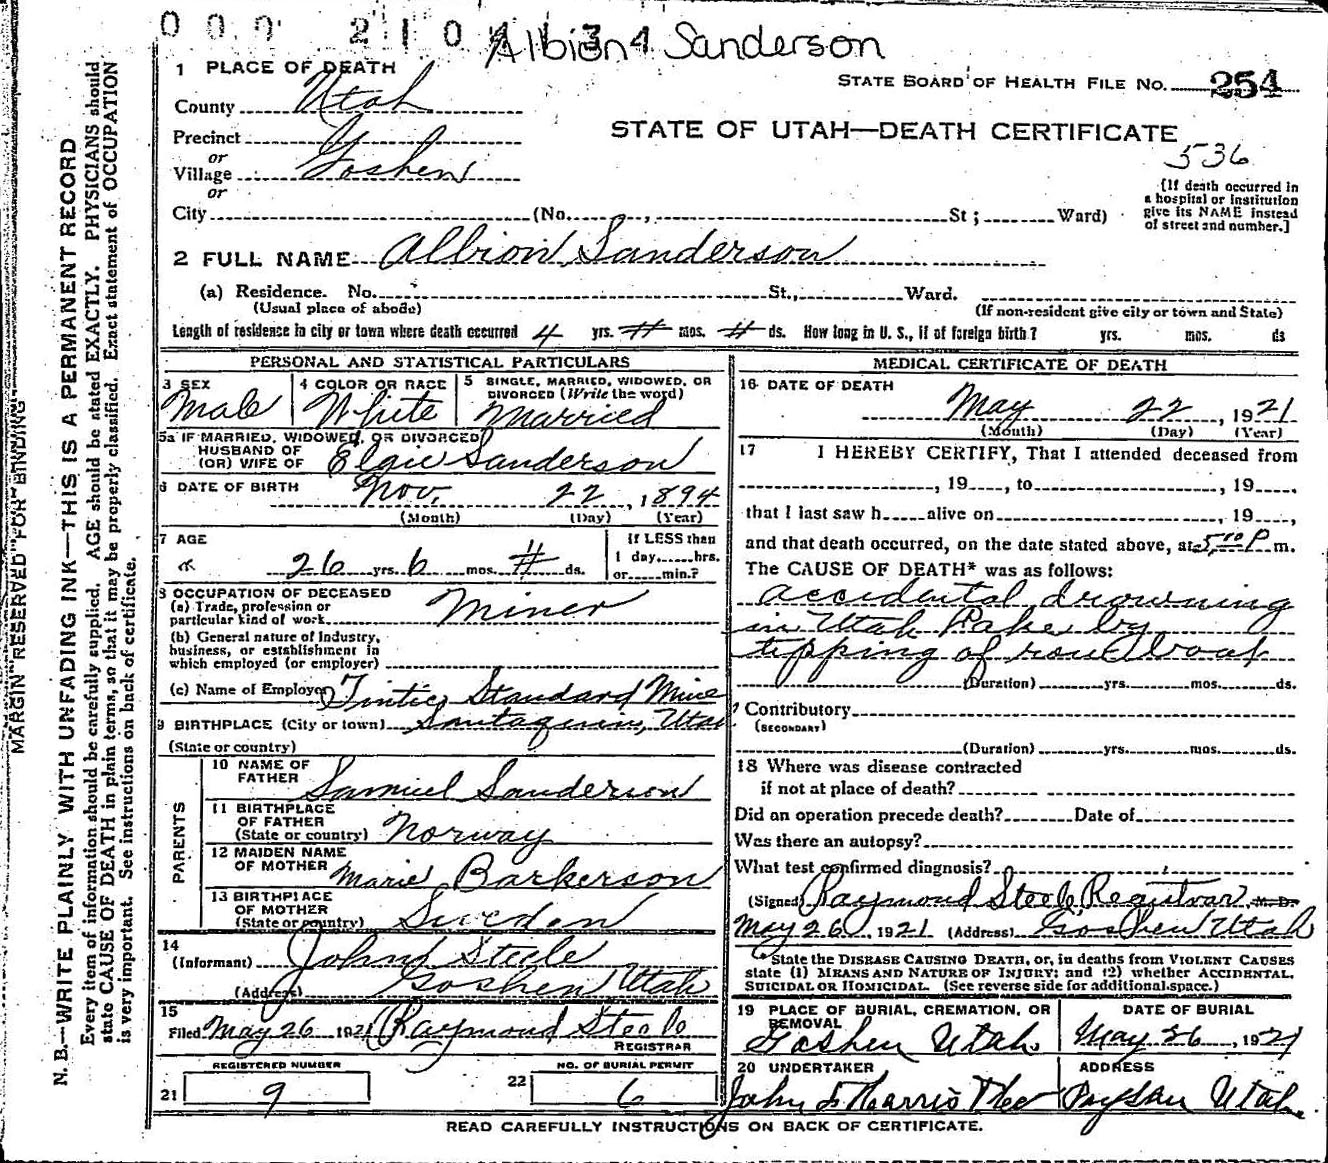 000 2101134
Albion Sanderson
1 PLACE OF DEATH
STATE BOARD OF HEALTH FILE NO. 254
County Utah
STATE OF UTAH—DEATH CERTIFICATE
536
Precinct
or
Village Goshen
or
City (No. , St ; Ward)
[If death occurred in
a hospital or institution
give its NAME instead
of street and number.]
2 FULL NAME Albion Sanderson
(a) Residence. No. St., Ward.
(Usual place of abode) (If non-resident give city or town and State)
Length of residence in city or town where death occurred 4 yrs. # mos. # ds. How long in U. S., if of foreign birth? yrs. mos. ds
PERSONAL AND STATISTICAL PARTICULARS
3 SEX
Male
4 COLOR OR RACE
White
5 SINGLE, MARRIED, WIDOWED, OR
DIVORCED (Write the word)
Married
5a IF MARRIED, WIDOWED, OR DIVORCED
HUSBAND OF
(OR) WIFE OF Elgie Sanderson
6 DATE OF BIRTH Nov. 22, 1894
(Month) (Day) (Year)
7 AGE
26 yrs. 6 mos. # ds.
If LESS than
1 day, hrs.
or min.?
8 OCCUPATION OF DECEASED
(a) Trade, profession or
particular kind of work Miner
(b) General nature of Industry,
business, or establishment in
which employed (or employer)
(c) Name of Employer Tintic Standard Mine
9 BIRTHPLACE (City or town) Santaquin, Utah
(State or country)
PARENTS
10 NAME OF
FATHER Samuel Sanderson
11 BIRTHPLACE
OF FATHER
(State or country) Norway
12 MAIDEN NAME
OF MOTHER Marie Barkerson
13 BIRTHPLACE
OF MOTHER
(State or country) Sweden
14
(Informant) John Steele
(Address) Goshen Utah
15
Filed May 26 1921 Raymond Steele
REGISTRAR
REGISTERED NUMBER
21 9
NO. OF BURIAL PERMIT
22 6
MEDICAL CERTIFICATE OF DEATH
16 DATE OF DEATH
May 22, 1921
(Month) (Day) (Year)
17 I HEREBY CERTIFY, That I attended deceased from
, 19 , to , 19 ,
that I last saw h alive on , 19 ,
and that death occurred, on the date stated above, at 5:10 P. m.
The CAUSE OF DEATH* was as follows:
accidental drowning
in Utah Lake by
tipping of row boat
(Duration) yrs. mos. ds.
Contributory
(SECONDARY)
(Duration) yrs. mos. ds.
18 Where was disease contracted
if not at place of death?
Did an operation precede death? Date of
Was there an autopsy?
What test confirmed diagnosis?
(Signed) Raymond Steele Registrar, M. D.
May 26, 1921 (Address) Goshen Utah
*State the DISEASE CAUSING DEATH, or, in deaths from VIOLENT CAUSES
state (1) MEANS AND NATURE OF INJURY; and (2) whether ACCIDENTAL,
SUICIDAL OR HOMICIDAL. (See reverse side for additional space.)
19 PLACE OF BURIAL, CREMATION, OR
REMOVAL
Goshen Utah
DATE OF BURIAL
May 26, 1921
20 UNDERTAKER
John Harris
ADDRESS
Payson Utah
READ CAREFULLY INSTRUCTIONS ON BACK OF CERTIFICATE.
MARGIN RESERVED FOR BINDING
N. B.—WRITE PLAINLY WITH UNFADING INK—THIS IS A PERMANENT RECORD
Every item of information should be carefully supplied. AGE should be stated EXACTLY. PHYSICIANS should
state CAUSE OF DEATH in plain terms, so that it may be properly classified. Exact statement of OCCUPATION
is very important. See instructions on back of certificate.